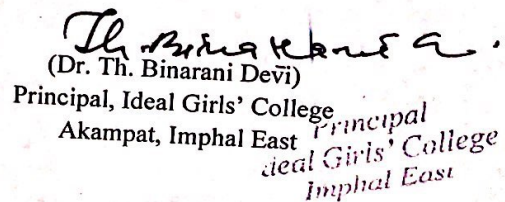 Th. Binarani Devi
(Dr. Th. Binarani Devi)
Principal, Ideal Girls' College
Akampat, Imphal East
Principal
deal Girls' College
Imphal East